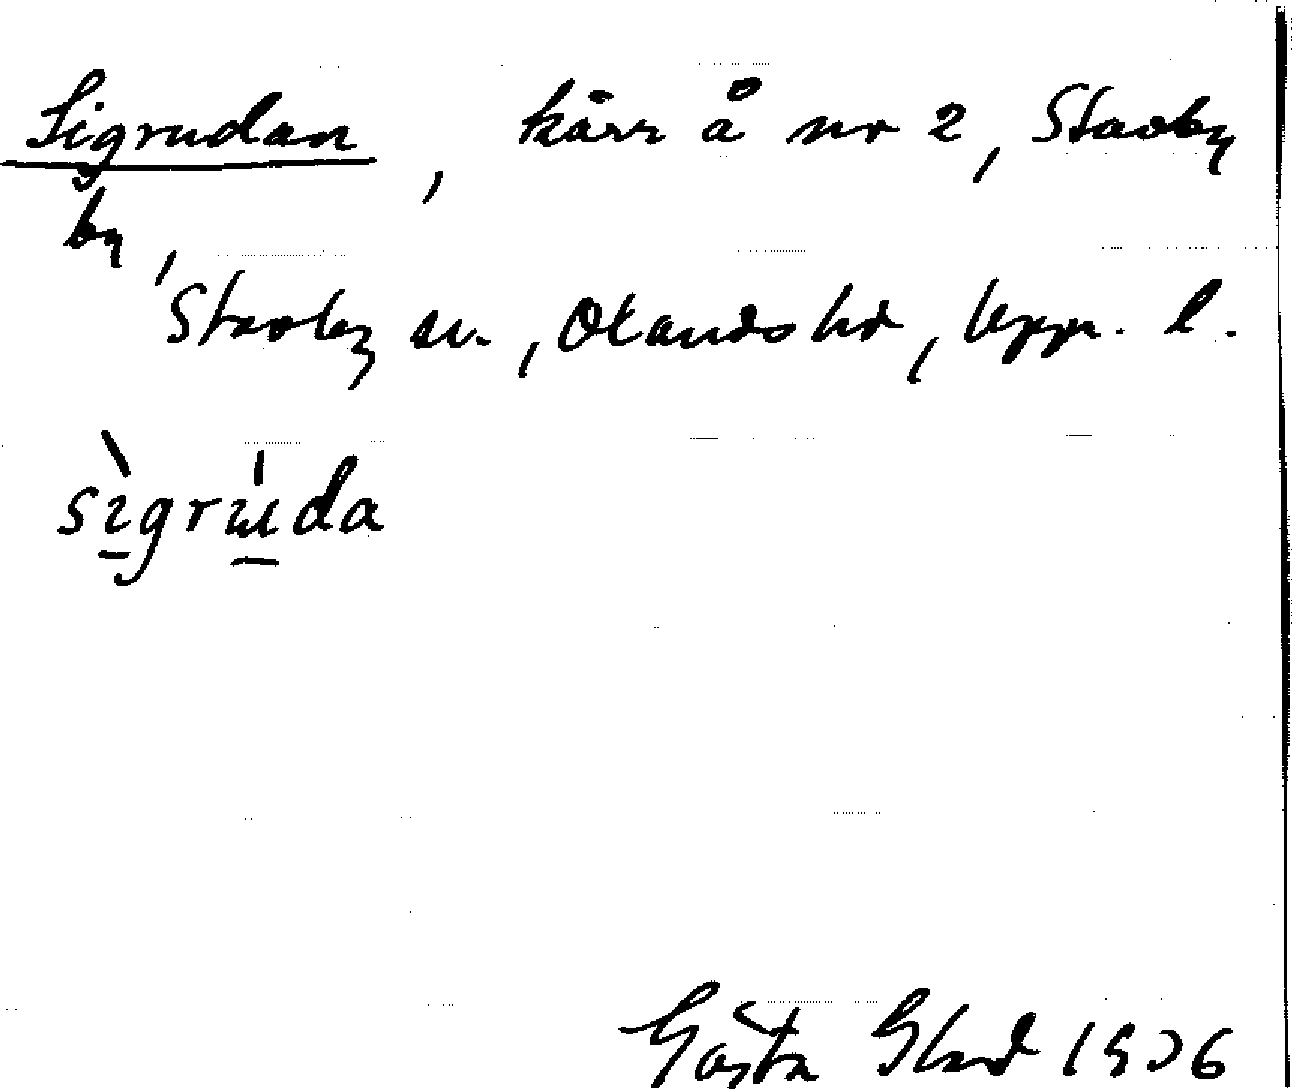 Sigrudan, kärr å nr 2, Stavby
by,
Stavby sn., Olands hd, Uppr. l.
sìgrúda
Gösta Blad 1936